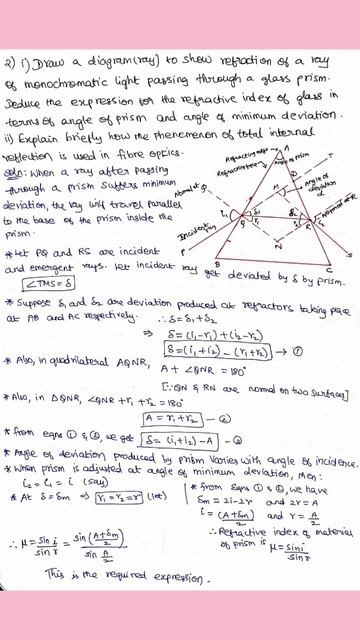 2) i) Draw a diagram(ray) to show refraction of a ray
of monochromatic light passing through a glass prism.
Deduce the expression for the refractive index of glass in
terms of angle of prism and angle of minimum deviation.
ii) Explain briefly how the phenomenon of total internal
reflection is used in fibre optics.
Soln: When a ray after passing
through a prism suffers minimum
deviation, the ray will travel parallel
to the base of the prism inside the
prism.
Refracting edge
A
Angle of prism
Refracting face
T
D
M
Angle of deviation
Normal at Q
Normal at R
i₁
Q
δ₁
r₁
δ₂
r₂
R
i₂
Incident ray
P
N
B
C
S
* Let PQ and RS are incident
and emergent rays. Let incident ray get deviated by δ by prism.
∠TMS = δ
* Suppose δ₁ and δ₂ are deviation produced at refractors taking place
at AB and AC respectively. ∴ δ = δ₁ + δ₂
⇒ δ = (i₁-r₁) + (i₂-r₂)
δ = (i₁+i₂) - (r₁+r₂) → ①
* Also, in quadrilateral AQNR, A + ∠QNR = 180°
[∵ QN & RN are normal on two surfaces]
* Also, in ΔQNR, ∠QNR + r₁ + r₂ = 180°
A = r₁ + r₂ - ②
* from eqns ① & ②, we get δ = (i₁+i₂) - A - ③
* Angle of deviation produced by prism varies with angle of incidence.
* When prism is adjusted at angle of minimum deviation, then:
i₁ = i₂ = i (say)
* At δ = δm ⇒ r₁ = r₂ = r (let)
* from Eqns ① & ②, we have
δm = 2i - 2r and 2r = A
i = (A+δm)/2 and r = A/2
∴ Refractive index of material
of prism is μ = sin i / sin r
∴ μ = sin i / sin r = sin((A+δm)/2) / sin A/2
This is the required expression.